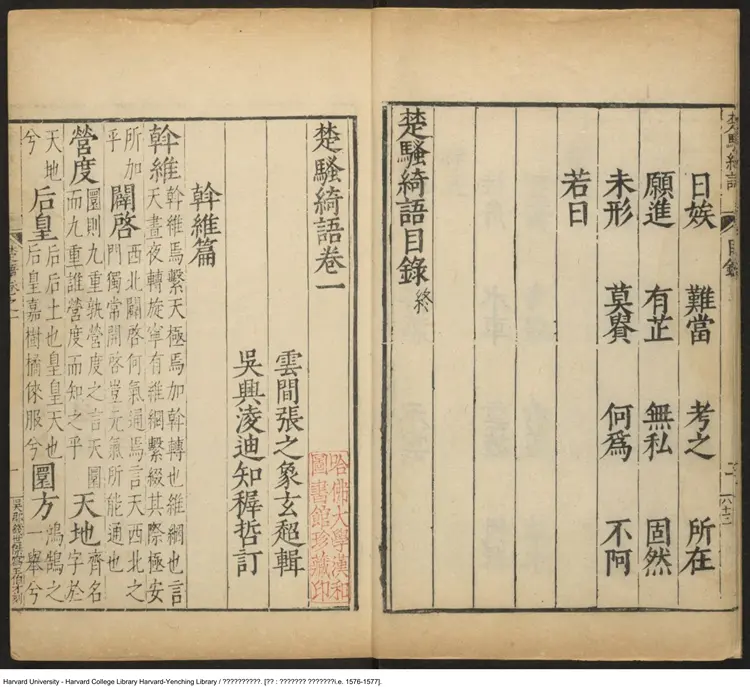 楚騷綺語
目錄
日娭 難當 考之 所在
願進 有芷 無私 固然
未形 莫賢 何爲 不阿
若日
楚騷綺語目錄 終
楚騷綺語卷一
雲間張之象玄超輯
吳興淩迪知穉哲訂
斡維篇
斡維 斡維焉繫天極焉加斡轉也維綱也言
天晝夜轉旋寧有維綱繫綴其際極安
所加
乎 闢啓 西北闢啓何氣通焉言天西北之
門獨常開啓豈元氣所能通也
營度 圜則九重孰營度之言天圜
而九重誰營度而知之乎 天地 齊名
字於
天地
兮 后皇 后后土也皇皇天也
后皇嘉樹橘徠服兮 圜方 鴻鵠之
一舉兮
哈佛大學漢和
圖書館珍藏印
Harvard University - Harvard College Library Harvard-Yenching Library / ??????????. [?? : ??????? ???????i.e. 1576-1577].